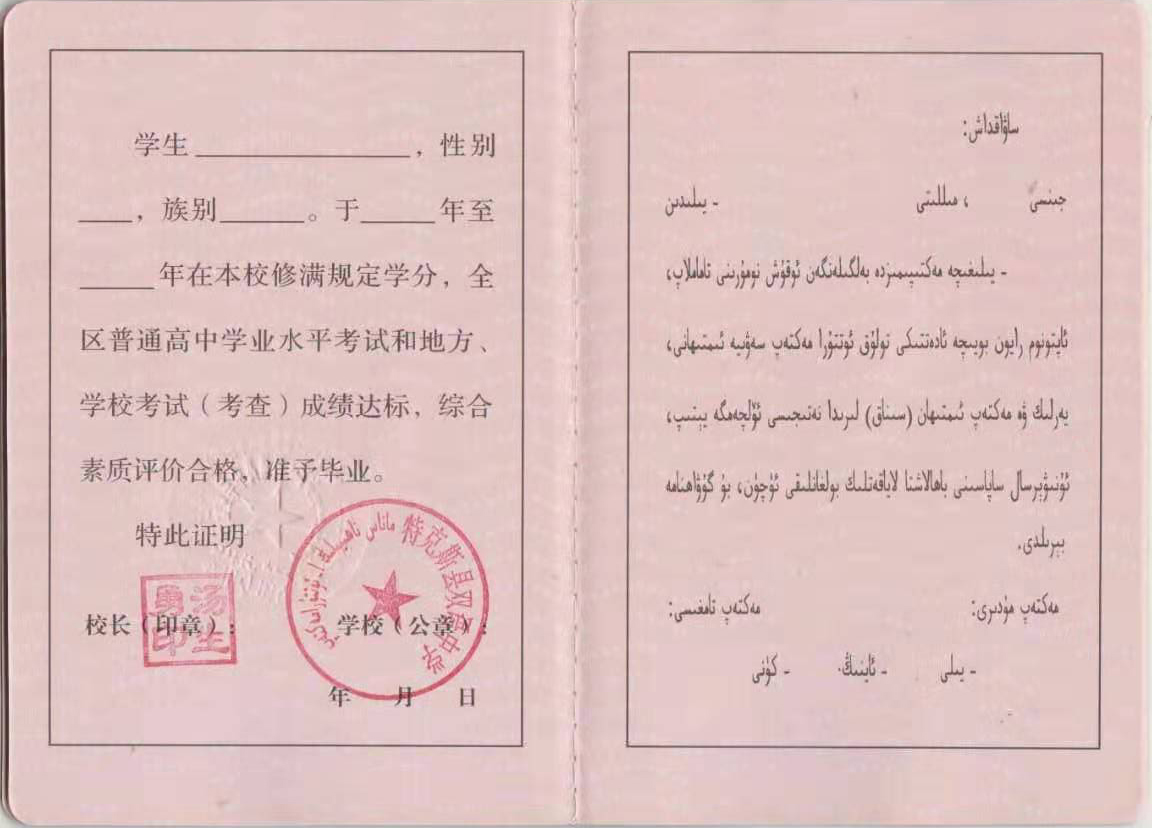 学生____________，性别
____，族别______。于_____年至
_____年在本校修满规定学分，全
区普通高中学业水平考试和地方、
学校考试（考查）成绩达标，综合
素质评价合格，准予毕业。
特此证明
校长（印章）：
学校（公章）：
年 月 日
特克斯县双语中学
汤勇生印
ساۋاقداش:
جىنسى ، مىللىتى - يىلىدىن
- يىلىغىچە مەكتىپىمىزدە بەلگىلەنگەن ئوقۇش نومۇرىنى تاماملاپ،
ئاپتونوم رايون بويىچە ئادەتتىكى تولۇق ئوتتۇرا مەكتەپ سەۋىيە ئىمتىھانى،
يەرلىك ۋە مەكتەپ ئىمتىھان (سىناق) لىرىدا نەتىجىسى ئۆلچەمگە يېتىپ،
ئۇنىۋېرسال ساپاسىنى باھالاشتا لاياقەتلىك بولغانلىقى ئۈچۈن، بۇ گۇۋاھنامە
بېرىلدى.
مەكتەپ مۇدىرى: مەكتەپ تامغىسى:
- يىلى - ئاينىڭ - كۈنى